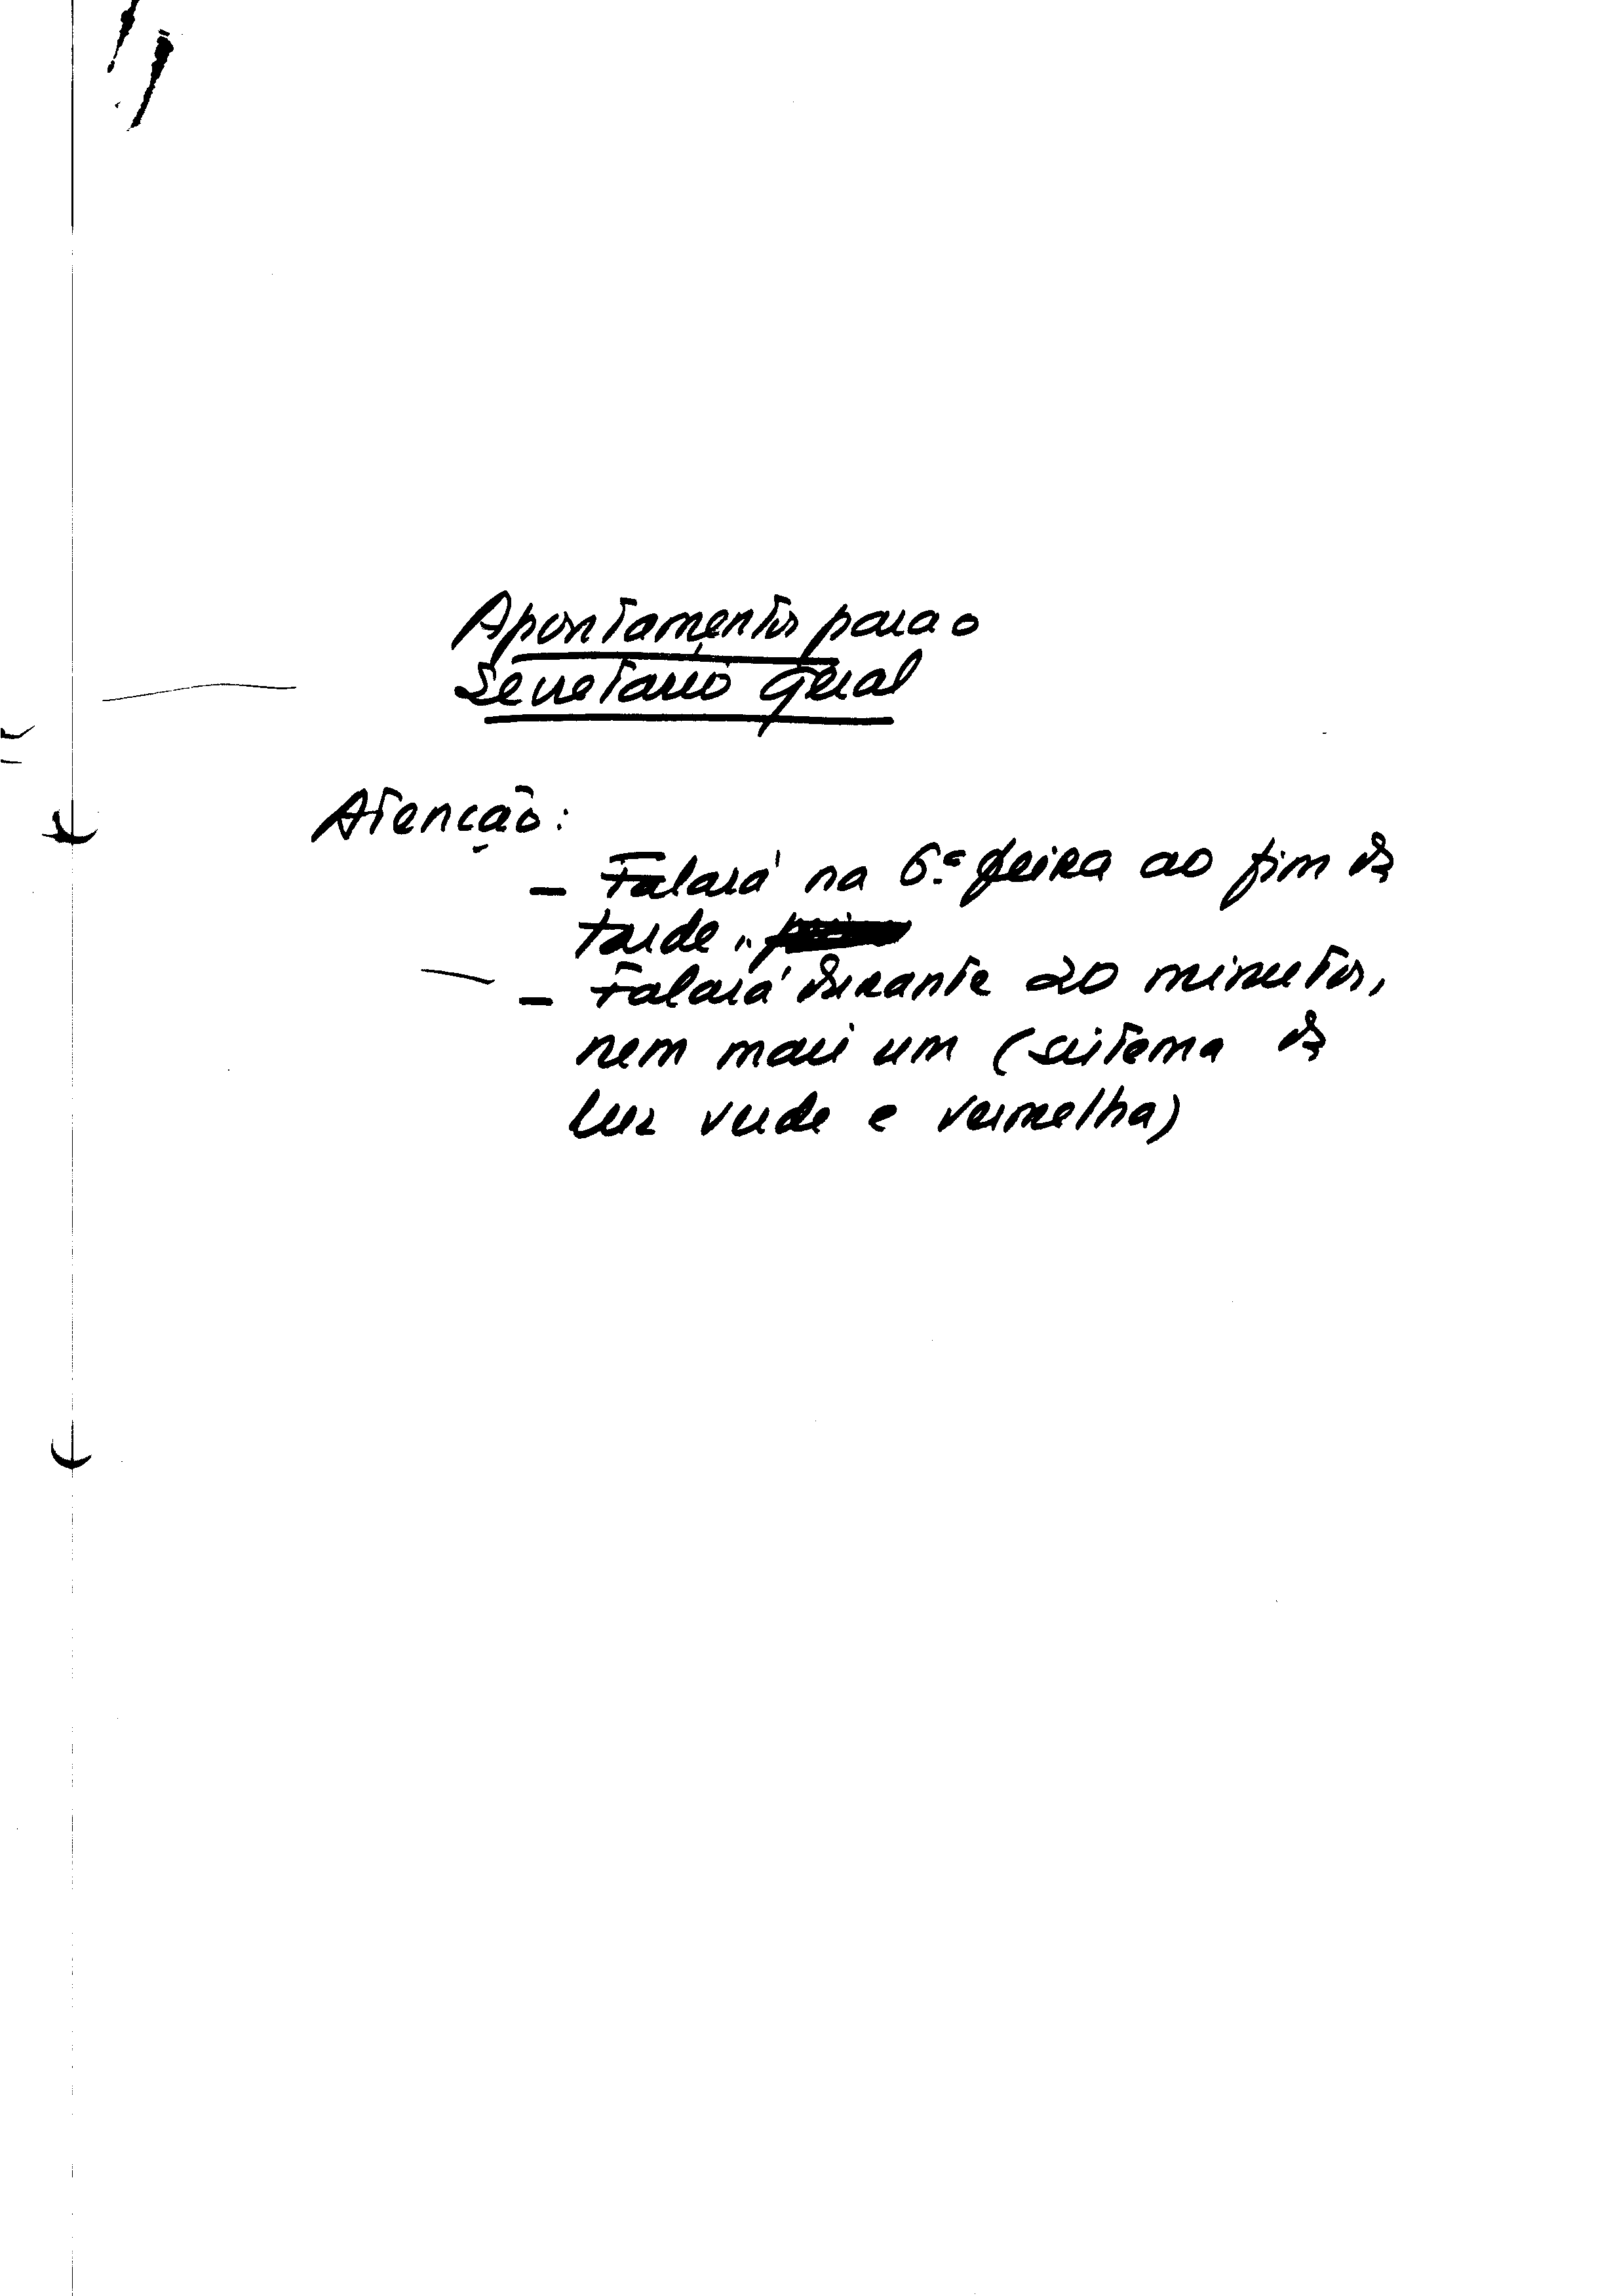 Apontamentos para o
Secretário Geral
Atenção:
- Falará na 6.ª feira ao fim da
tarde.
- Falará durante 20 minutos,
nem mais um (sistema de
luz verde e vermelha)